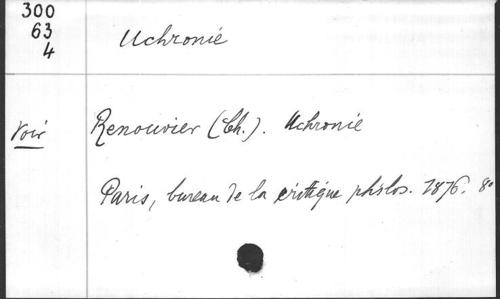 300
63
4
Uchronie
Voir
Renouvier (Ch.). Uchronie
Paris, bureau de la critique philos. 1876. 8°